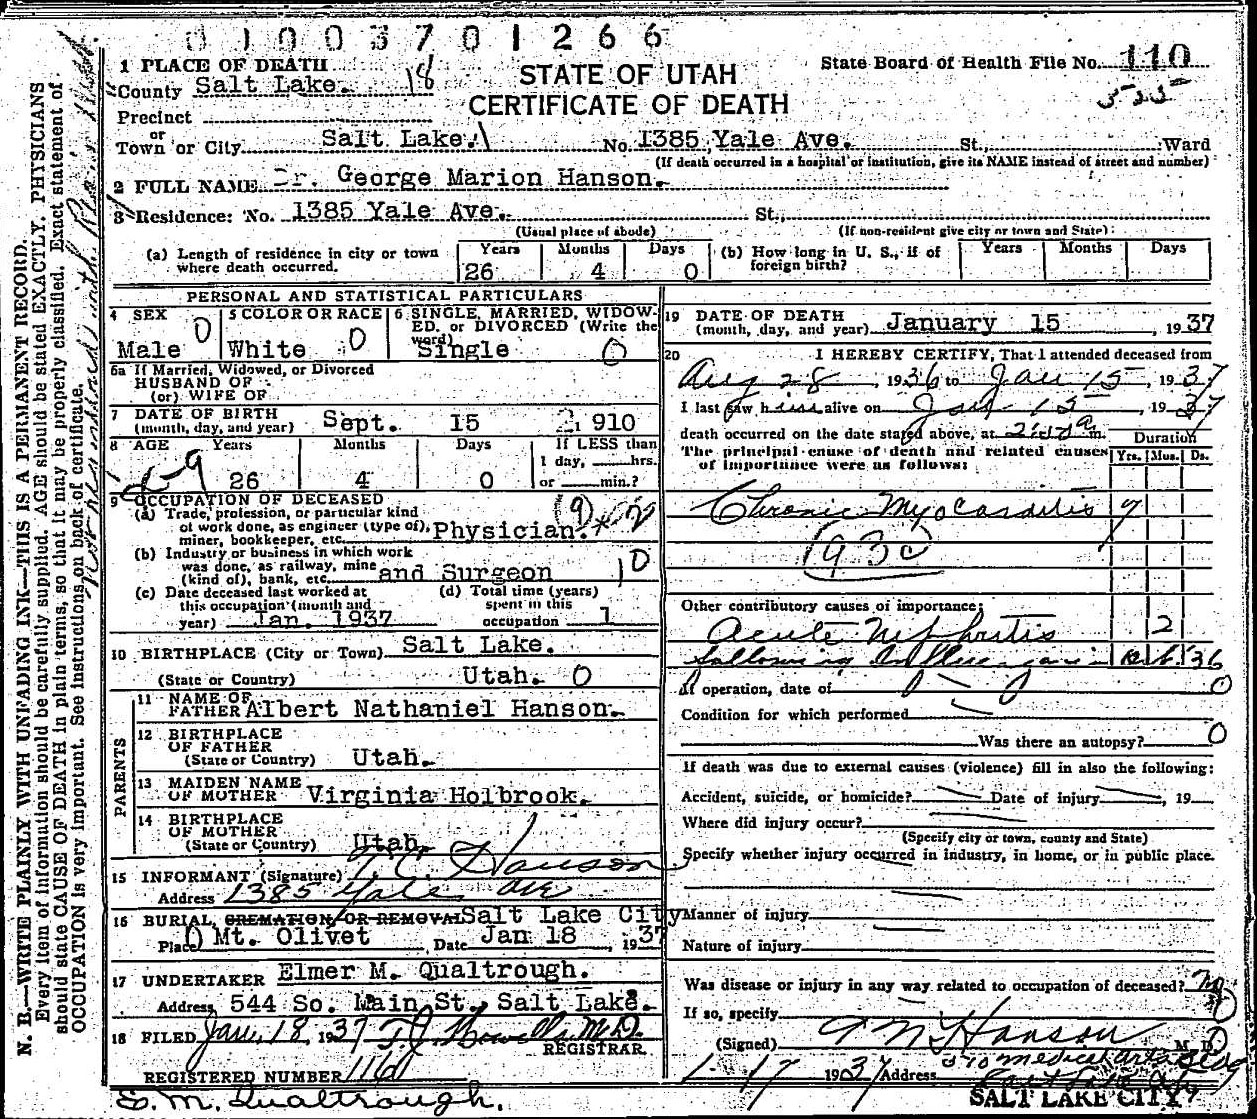 0 1 0 0 3 7 0 1 2 6 6
1 PLACE OF DEATH
County Salt Lake. 18
STATE OF UTAH
CERTIFICATE OF DEATH
State Board of Health File No. 110
Precinct
or
Town or City Salt Lake. No. 1385 Yale Ave. St., Ward
(If death occurred in a hospital or institution, give its NAME instead of street and number)
2 FULL NAME Dr. George Marion Hanson.
3 Residence: No. 1385 Yale Ave. St.,
(Usual place of abode) (If non-resident give city or town and State)
(a) Length of residence in city or town where death occurred. Years 26 Months 4 Days 0
(b) How long in U. S., if of foreign birth? Years Months Days
PERSONAL AND STATISTICAL PARTICULARS
4 SEX Male 0
5 COLOR OR RACE White 0
6 SINGLE, MARRIED, WIDOWED, or DIVORCED (Write the word) Single 0
6a If Married, Widowed, or Divorced
HUSBAND OF
(or) WIFE OF
7 DATE OF BIRTH
(month, day, and year) Sept. 15 1, 910
8 AGE Years 26 Months 4 Days 0
If LESS than
1 day, hrs.
or min.?
9 OCCUPATION OF DECEASED
(a) Trade, profession, or particular kind
of work done, as engineer (type of),
miner, bookkeeper, etc. Physician.
(b) Industry or business in which work
was done, as railway, mine
(kind of), bank, etc. and Surgeon 10
(c) Date deceased last worked at
this occupation (month and
year) Jan. 1937
(d) Total time (years)
spent in this
occupation 1
10 BIRTHPLACE (City or Town) Salt Lake.
(State or Country) Utah. 0
PARENTS
11 NAME OF
FATHER Albert Nathaniel Hanson.
12 BIRTHPLACE
OF FATHER
(State or Country) Utah.
13 MAIDEN NAME
OF MOTHER Virginia Holbrook.
14 BIRTHPLACE
OF MOTHER
(State or Country) Utah.
15 INFORMANT (Signature) Hanson
Address 1385 Yale Ave
16 BURIAL, CREMATION, OR REMOVAL Salt Lake City
Place Mt. Olivet Date Jan 18, 1937
17 UNDERTAKER Elmer M. Qualtrough.
Address 544 So. Main St., Salt Lake.
18 FILED Jan. 18, 1937 T. J. Howells M.D.
REGISTRAR
REGISTERED NUMBER 116
E. M. Qualtrough.
19 DATE OF DEATH
(month, day, and year) January 15, 1937
20 I HEREBY CERTIFY, That I attended deceased from
Aug 28, 1936 to Jan 15, 1937
I last saw him alive on Jan 15, 1937
death occurred on the date stated above, at m.
Duration
The principal cause of death and related causes of importance were as follows: Yrs. Mos. Ds.
Chronic Myocarditis ?
93c
Other contributory causes of importance:
Acute Nephritis 2
following Influenza in 36
If operation, date of 0
Condition for which performed
Was there an autopsy? 0
If death was due to external causes (violence) fill in also the following:
Accident, suicide, or homicide? Date of injury , 19
Where did injury occur?
(Specify city or town, county and State)
Specify whether injury occurred in industry, in home, or in public place.
Manner of injury
Nature of injury
Was disease or injury in any way related to occupation of deceased? No
If so, specify
(Signed) Hanson M. D.
1-17 1937 Address 570 Medical Arts Bldg
SALT LAKE CITY
N. B.—WRITE PLAINLY WITH UNFADING INK—THIS IS A PERMANENT RECORD.
Every item of information should be carefully supplied. AGE should be stated EXACTLY. PHYSICIANS
should state CAUSE OF DEATH in plain terms, so that it may be properly classified. Exact statement of
OCCUPATION is very important. See instructions on back of certificate.